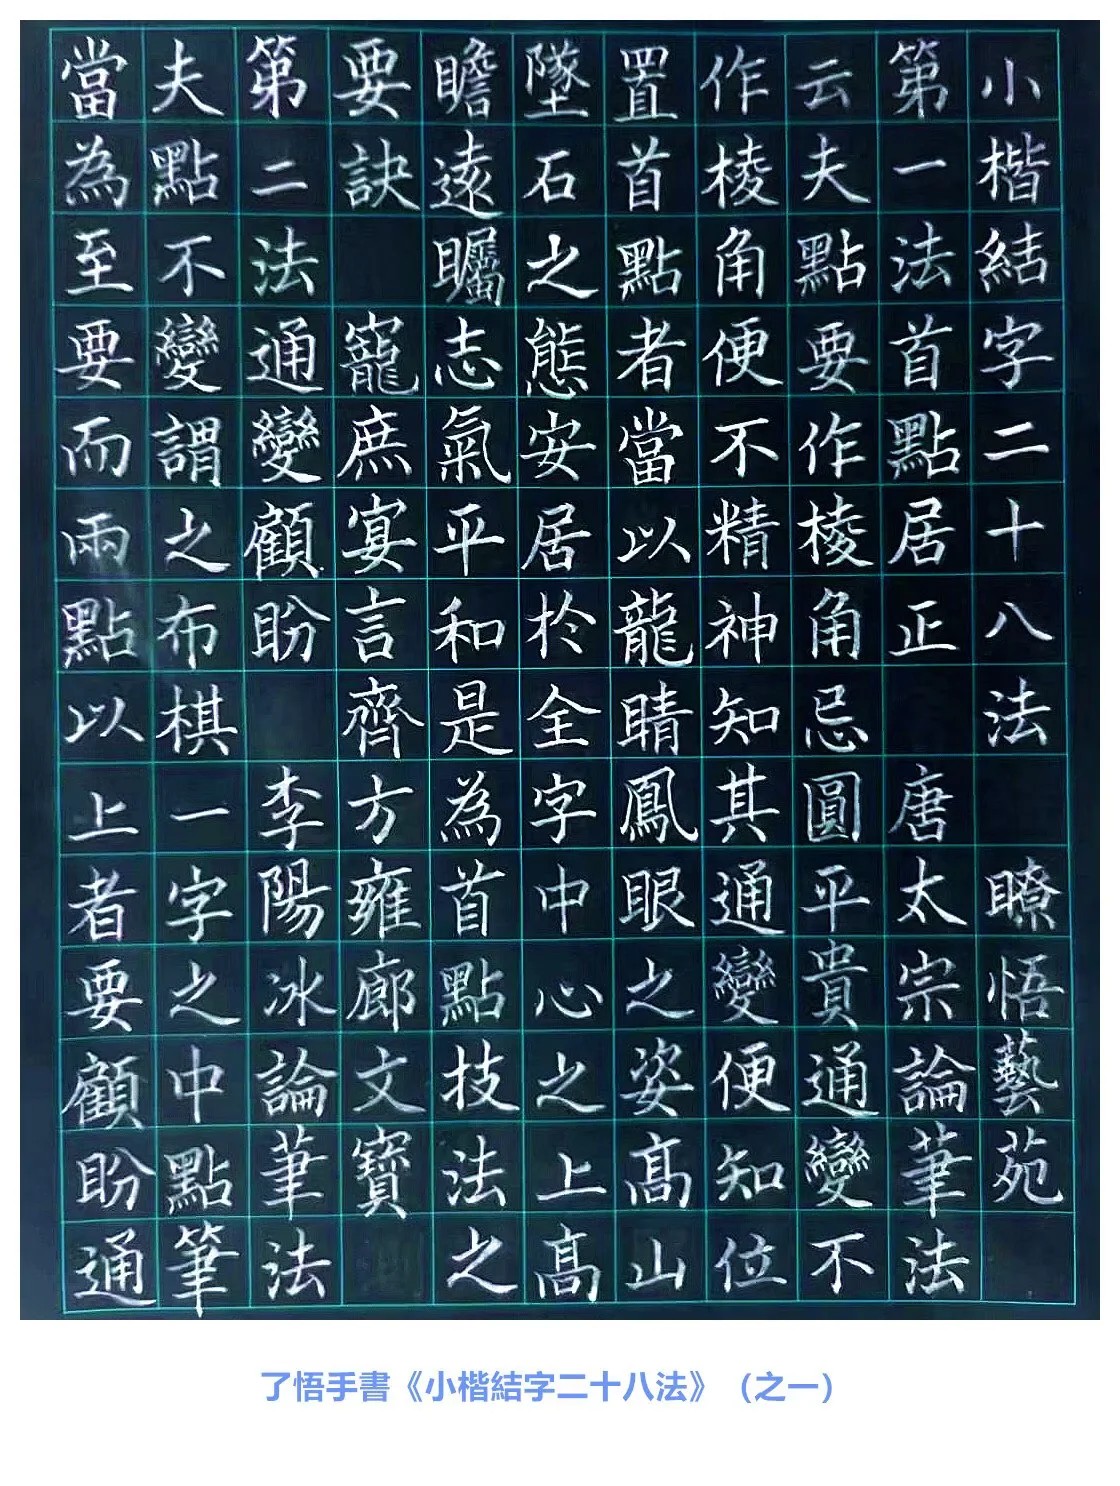 小楷結字二十八法 瞭悟藝苑
第一法首點居正 唐太宗論筆法
云夫點要作棱角忌圓平貴通變不
作棱角便不精神知其通變便知位
置首點者當以龍睛鳳眼之姿高山
墜石之態安居於全字中心之上高
瞻遠矚志氣平和是為首點技法之
要訣 寵庶宴言齊方雍廊文寶
第二法通變顧盼 李陽冰論筆法
夫點不變謂之布棋一字之中點筆
當為至要而兩點以上者要顧盼通
了悟手書《小楷結字二十八法》（之一）